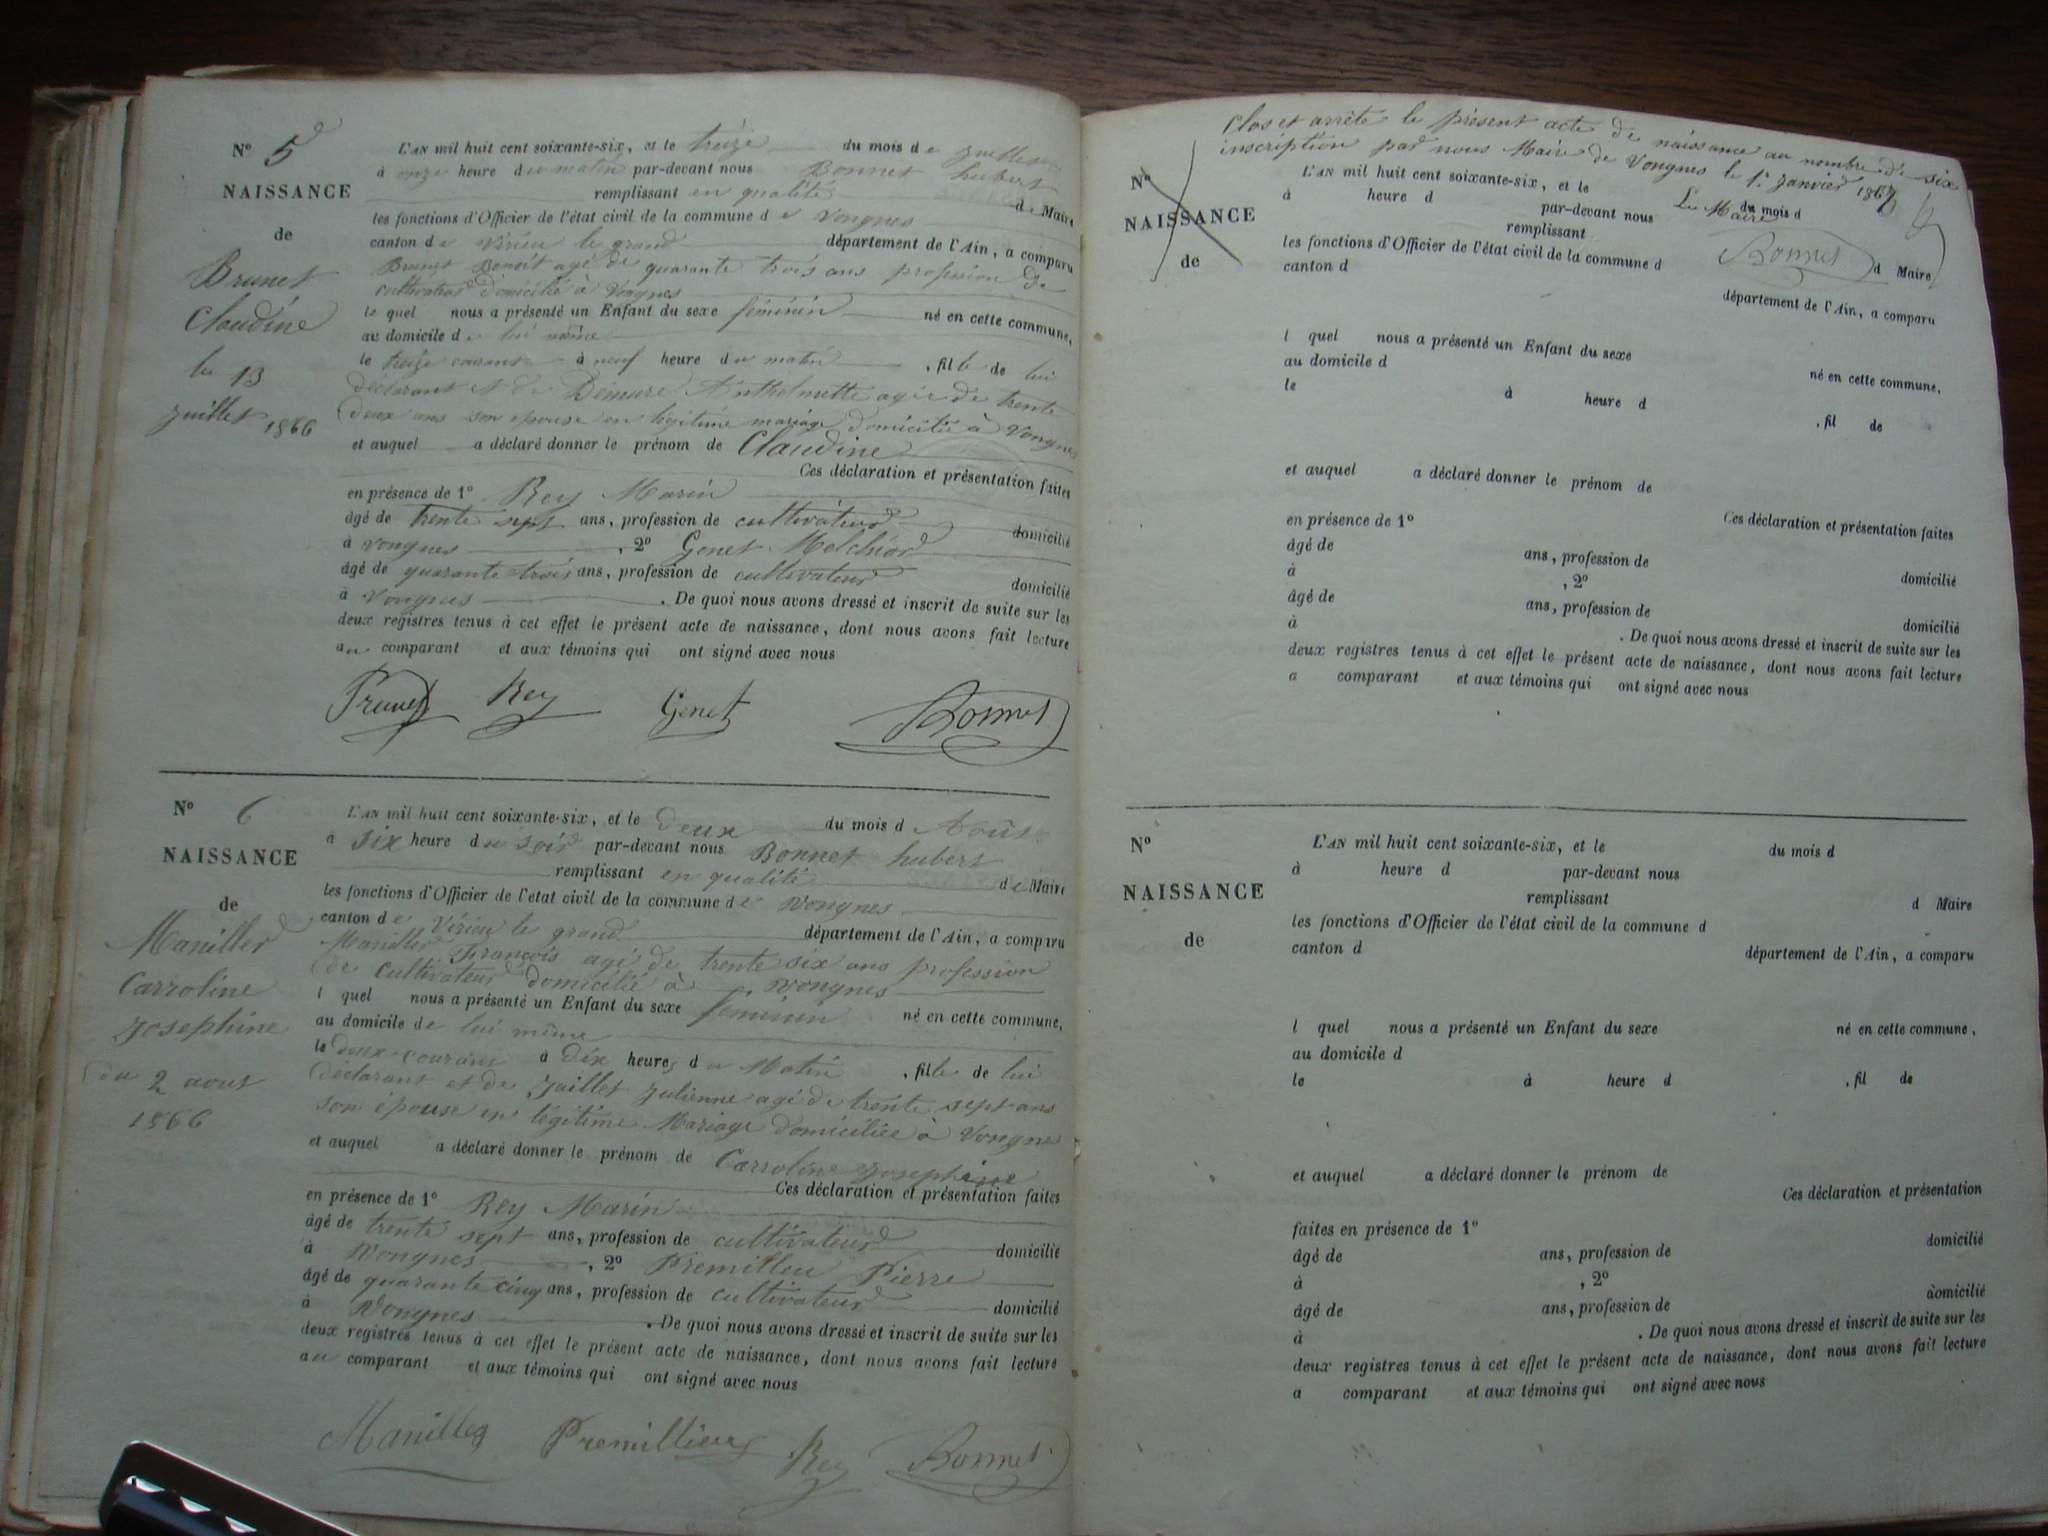 No 5
NAISSANCE
de
Brunet
Claudine
le 13
juillet 1866
L'AN mil huit cent soixante-six, et le treize du mois de juillet
à onze heure du matin par-devant nous Bonnet hubert
remplissant en qualité de Maire
les fonctions d'Officier de l'état civil de la commune de Vongnes
canton de Virieu le grand département de l'Ain, a comparu
Brunet Benoit agé de quarante trois ans profession de
cultivateur domicilié à Vongnes
le quel nous a présenté un Enfant du sexe féminin né en cette commune,
au domicile de lui même
le treize courant à neuf heure du matin, fille de lui
déclarant et de Demure Anthelmette agée de trente
deux ans son épouse en légitime mariage domicilié à Vongnes
et auquel a déclaré donner le prénom de Claudine
Ces déclaration et présentation faites
en présence de 1o Rey Marin
âgé de trente sept ans, profession de cultivateur domicilié
à Vongnes, 2o Genet Melchior
âgé de quarante trois ans, profession de cultivateur domicilié
à Vongnes. De quoi nous avons dressé et inscrit de suite sur les
deux registres tenus à cet effet le présent acte de naissance, dont nous avons fait lecture
au comparant et aux témoins qui ont signé avec nous
Brunet Rey Genet Bonnet
No 6
NAISSANCE
de
Maniller
Carroline
Josephine
du 2 aout
1866
L'AN mil huit cent soixante-six, et le deux du mois d Août
à six heure du soir par-devant nous Bonnet hubert
remplissant en qualité de Maire
les fonctions d'Officier de l'etat civil de la commune de Vongnes
canton de Virieu le grand département de l'Ain, a comparu
Maniller François agé de trente six ans profession
de cultivateur domicilié à Vongnes
l quel nous a présenté un Enfant du sexe féminin né en cette commune,
au domicile de lui même
le deux courant à dix heures du Matin, fille de lui
déclarant et de Juillet Julienne agé de trente sept ans
son épouse en légitime Mariage domiciliée à Vongnes
et auquel a déclaré donner le prénom de Carroline Josephine
Ces déclaration et présentation faites
en présence de 1o Rey Marin
âgé de trente sept ans, profession de cultivateur domicilié
à Vongnes, 2o Premilleu Pierre
âgé de quarante cinq ans, profession de cultivateur domicilié
à Vongnes. De quoi nous avons dressé et inscrit de suite sur les
deux registres tenus à cet effet le présent acte de naissance, dont nous avons fait lecture
au comparant et aux témoins qui ont signé avec nous
Maniller Premillieu Rey Bonnet
Clos et arrêté le présent acte de naissance au nombre de six
inscription par nous Maire de Vongnes le 1er janvier 1867
Le Maire
Bonnet
No
NAISSANCE
de
L'AN mil huit cent soixante-six, et le du mois d
à heure d par-devant nous
remplissant d Maire
les fonctions d'Officier de l'état civil de la commune d
canton d département de l'Ain, a comparu
l quel nous a présenté un Enfant du sexe né en cette commune,
au domicile d
le à heure d, fil de
et auquel a déclaré donner le prénom de
Ces déclaration et présentation faites
en présence de 1o
âgé de ans, profession de domicilié
à, 2o
âgé de ans, profession de domicilié
à. De quoi nous avons dressé et inscrit de suite sur les
deux registres tenus à cet effet le présent acte de naissance, dont nous avons fait lecture
a comparant et aux témoins qui ont signé avec nous
No
NAISSANCE
de
L'AN mil huit cent soixante-six, et le du mois d
à heure d par-devant nous
remplissant d Maire
les fonctions d'Officier de l'état civil de la commune d
canton d département de l'Ain, a comparu
l quel nous a présenté un Enfant du sexe né en cette commune,
au domicile d
le à heure d, fil de
et auquel a déclaré donner le prénom de
Ces déclaration et présentation
faites en présence de 1o
âgé de ans, profession de domicilié
à, 2o
âgé de ans, profession de domicilié
à. De quoi nous avons dressé et inscrit de suite sur les
deux registres tenus à cet effet le présent acte de naissance, dont nous avons fait lecture
a comparant et aux témoins qui ont signé avec nous